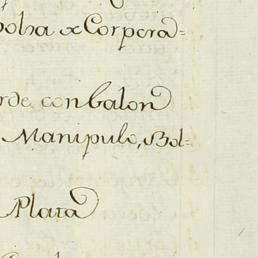 bolsa e Corpora=
rde con balon
Manipulo, Bol-
Plata